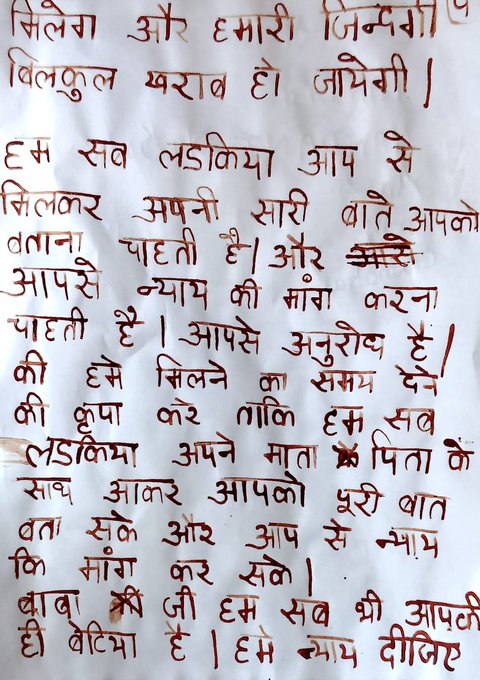 मिलेग और हमारी जिन्दगी
बिलकुल खराब हो जायेगी |
हम सब लडकिया आप से
मिलकर अपनी सारी बाते आपको
बताना चाहती है| और
आपसे न्याय की मांग करना
चाहती है | आपसे अनुरोध है|
की हमे मिलने का समय देने
की कृपा करे ताकि हम सब
लडकिया अपने माता पिता के
साथ आकर आपको पूरी बात
बता सके और आप से न्याय
कि मांग कर सके |
बाबा जी हम सब भी आपकी
ही बेटिया है | हमे न्याय दीजिए